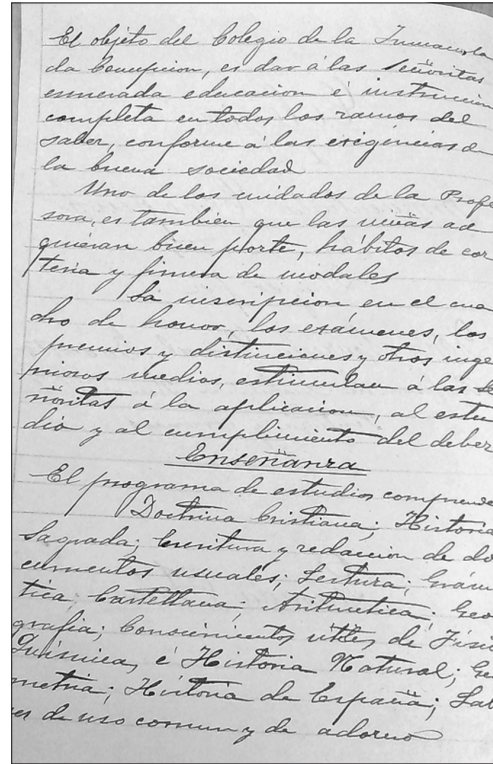 El objeto del Colegio de la Inmacula
da Concepcion, es dar á las Señoritas
esmerada educacion é instruccion
completa en todos los ramos del
saber, conforme á las exigencias de
la buena sociedad
Uno de los cuidados de la Profe
sora, es tambien que las niñas ad
quieran buen porte, hábitos de cor
tesia y finura de modales
La inscripcion en el cua
dro de honor, los exámenes, los
premios y distinciones y otros inge
niosos medios, estimulan á las Se
ñoritas á la aplicacion, al estu
dio y al cumplimiento del deber
Enseñanza
El programa de estudios comprende
Doctrina Cristiana; Historia
Sagrada; Escritura y redaccion de do
cumentos usuales; Lectura; Gramá
tica, Castellana; Aritmetica, Geo
grafia; Conocimientos útiles de Física
Quimica, é Historia Natural; Ge
ometria; Historia de España; Labo
res de uso comun y de adorno